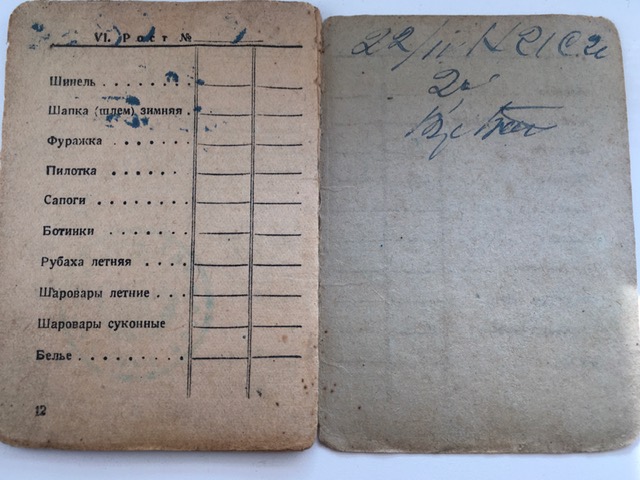 VI. Рост №
Шинель . . . . . . . .
Шапка (шлем) зимняя .
Фуражка . . . . . . .
Пилотка . . . . . .
Сапоги . . . . . . .
Ботинки . . . . . . .
Рубаха летняя . . . .
Шаровары летние . . .
Шаровары суконные
Белье . . . . . . . . .
12